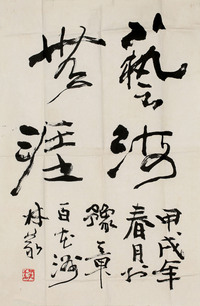 藝海
無涯
甲戌年
春月於
豫章
百花洲
林